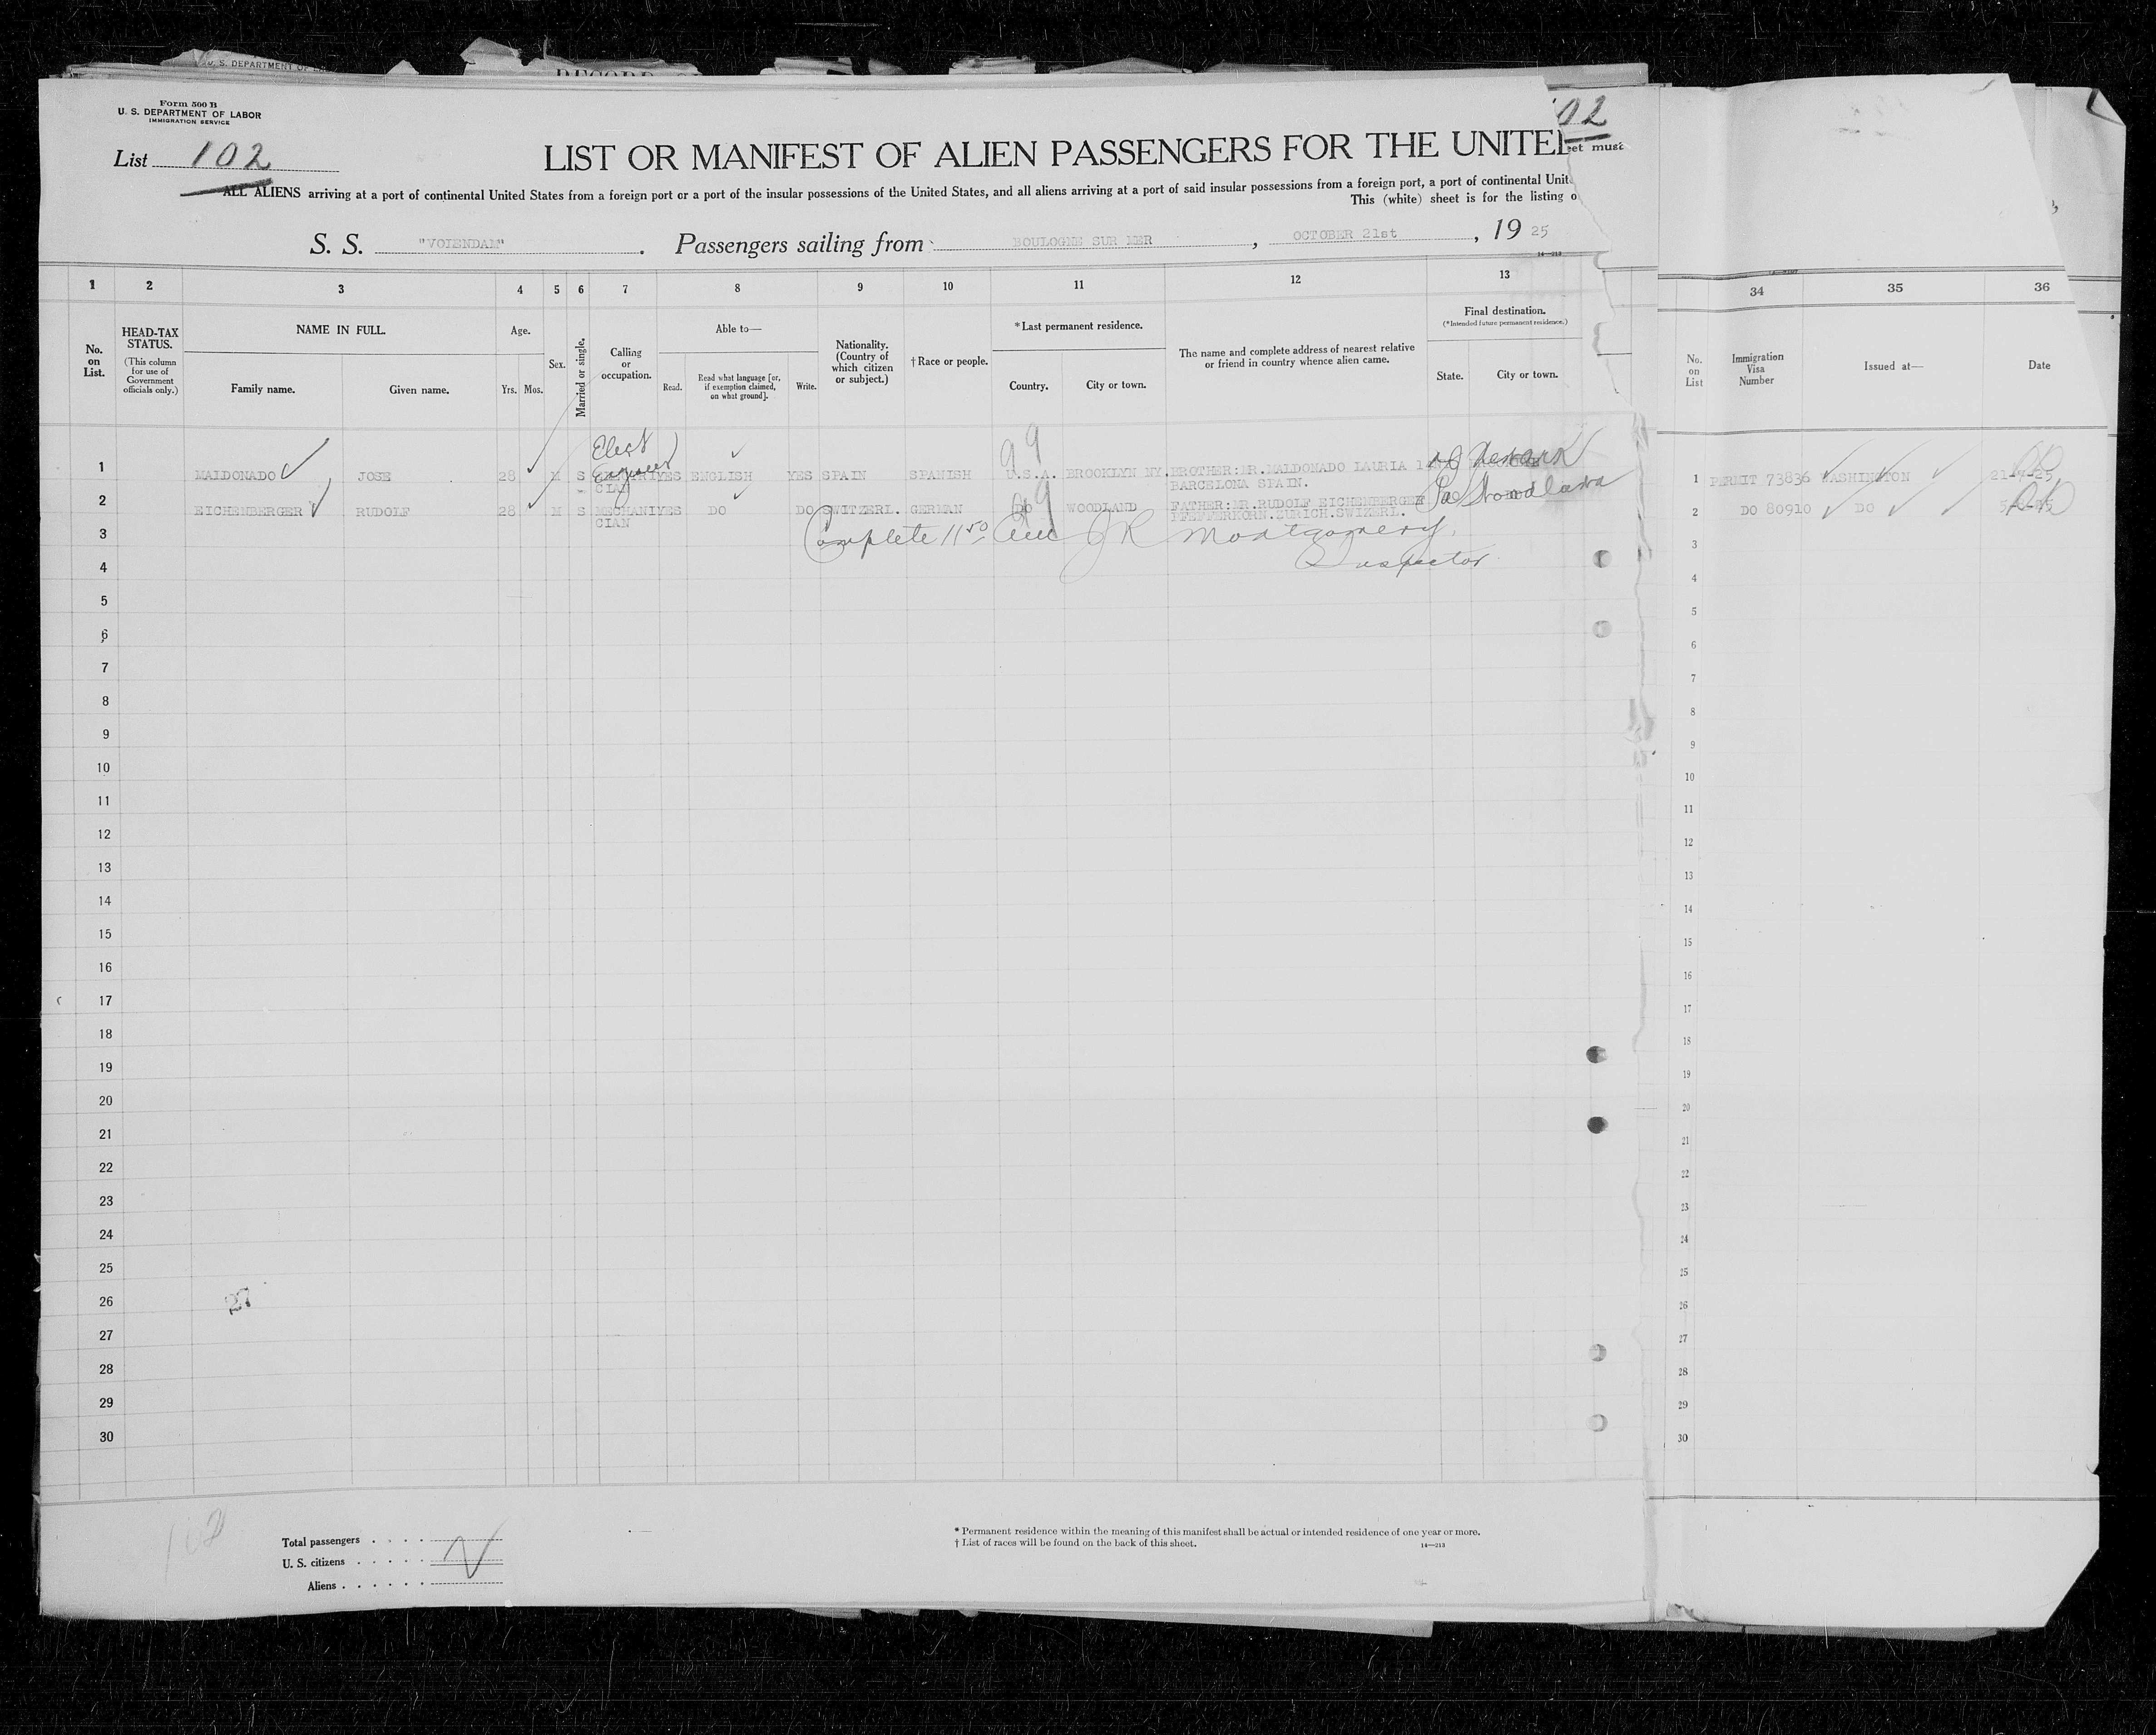 U. S. DEPARTMENT OF
RECORD
Form 500 B
U. S. DEPARTMENT OF LABOR
IMMIGRATION SERVICE
List 102
02
LIST OR MANIFEST OF ALIEN PASSENGERS FOR THE UNITE
eet must
ALL ALIENS arriving at a port of continental United States from a foreign port or a port of the insular possessions of the United States, and all aliens arriving at a port of said insular possessions from a foreign port, a port of continental Unit
This (white) sheet is for the listing o
S. S. "VOLENDAM". Passengers sailing from BOULOGNE SUR MER, OCTOBER 21st, 1925
14—313
1 2 3 4 5 6 7 8 9 10 11 12 13 34 35 36
No. on List.
HEAD-TAX STATUS.
(This column for use of Government officials only.)
NAME IN FULL.
Family name. Given name.
Age.
Yrs. Mos.
Sex.
Married or single.
Calling or occupation.
Able to—
Read. Read what language [or, if exemption claimed, on what ground]. Write.
Nationality. (Country of which citizen or subject.)
†Race or people.
*Last permanent residence.
Country. City or town.
The name and complete address of nearest relative or friend in country whence alien came.
Final destination.
(*Intended future permanent residence.)
State. City or town.
No. on List
Immigration Visa Number
Issued at—
Date
Elect
Engineer
1 MALDONADO JOSE 28 M S YES ENGLISH YES SPAIN SPANISH U.S.A. BROOKLYN NY. BROTHER:MR.MALDONADO LAURIA NJ Newark
CIAN BARCELONA SPAIN.
1 PERMIT 73836 WASHINGTON 21-7-25
2 EICHENBERGER RUDOLF 28 M S MECHANI YES DO DO SWITZERL. GERMAN DO WOODLAND FATHER:MR.RUDOLF EICHENBERGER Pa Woodland
CIAN PFEFFERKORN.ZURICH.SWIZERL.
2 DO 80910 DO
Complete 11 50 am J R Montgomery,
Inspector
3
4
5
6
7
8
9
10
11
12
13
14
15
16
17
18
19
20
21
22
23
24
25
26
27
28
29
30
3
4
5
6
7
8
9
10
11
12
13
14
15
16
17
18
19
20
21
22
23
24
25
26
27
28
29
30
27
102
Total passengers
U. S. citizens
Aliens
* Permanent residence within the meaning of this manifest shall be actual or intended residence of one year or more.
† List of races will be found on the back of this sheet.
14—313